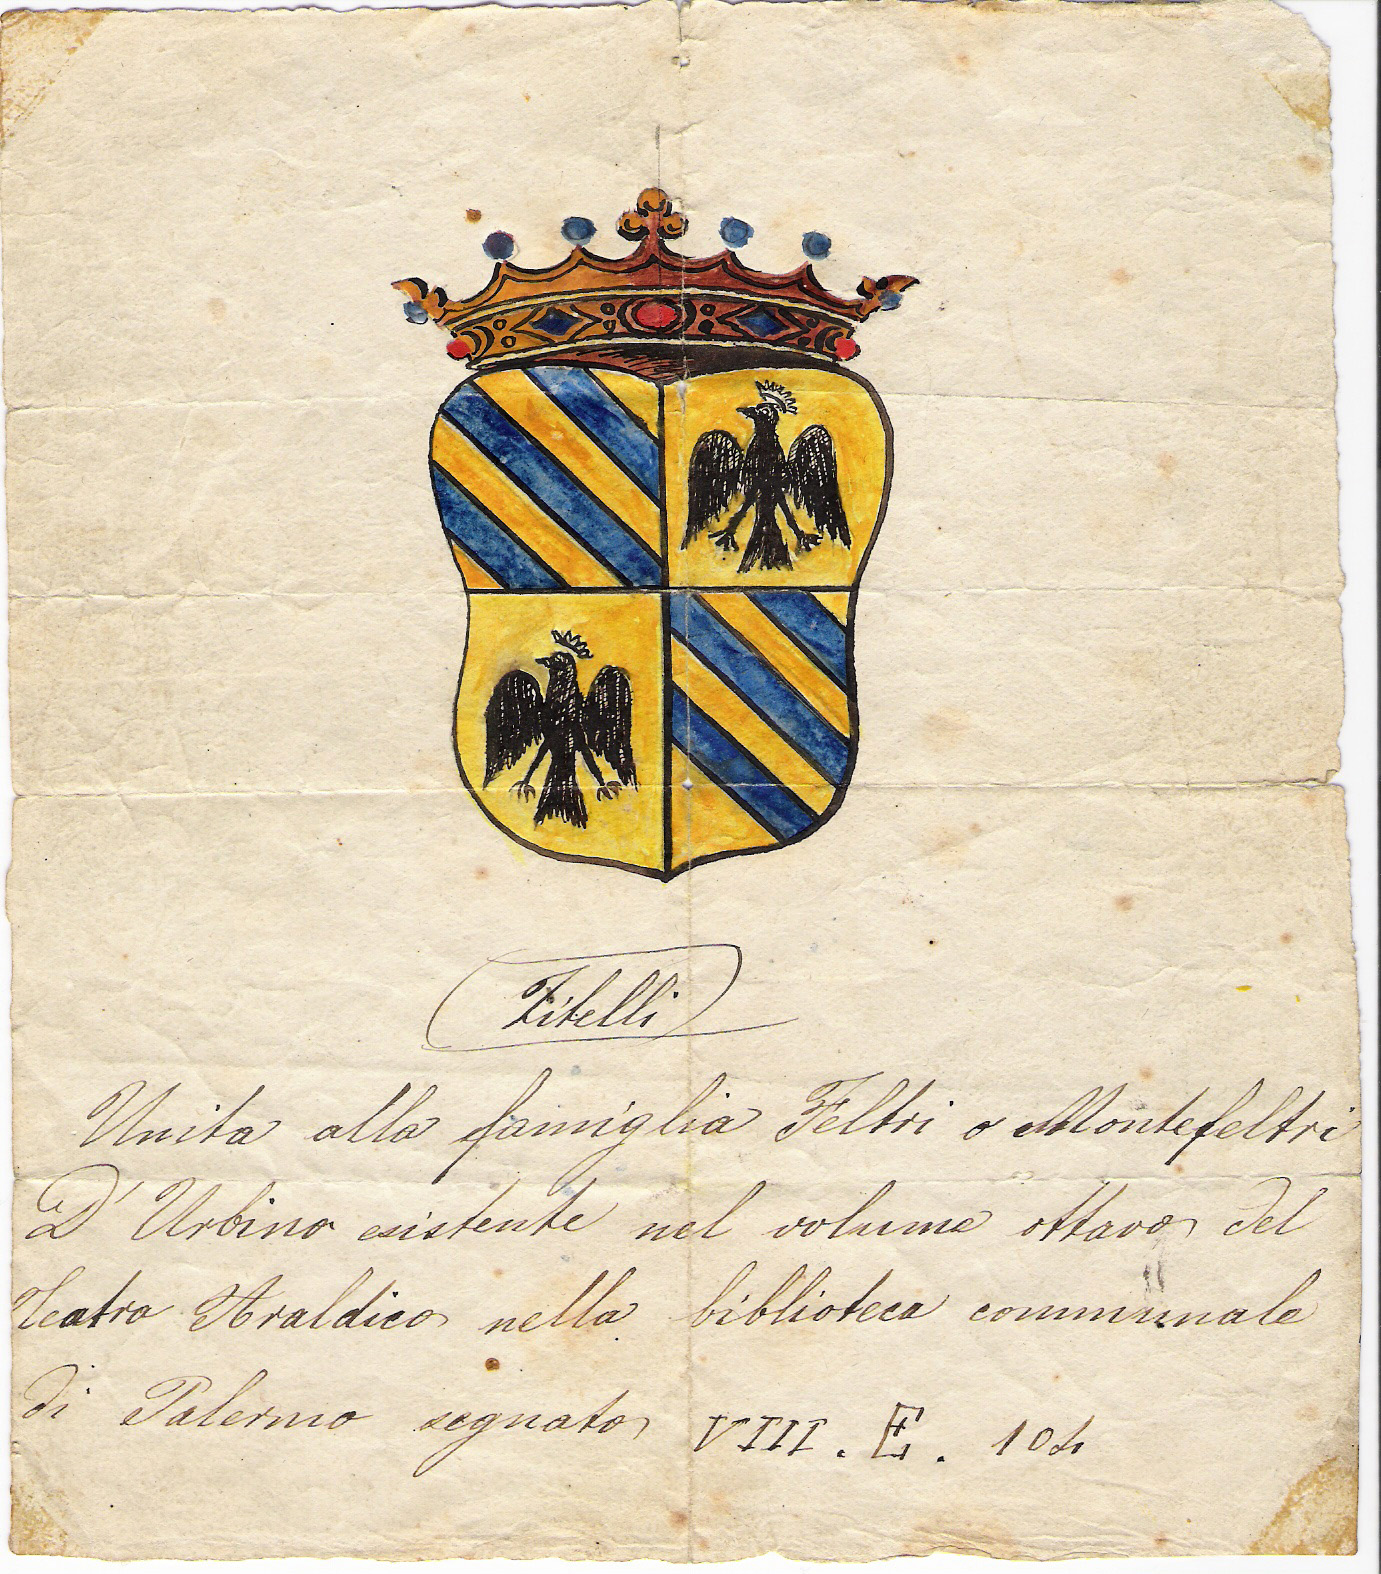 Titelli
Unita alla famiglia Feltri o Montefeltri
D'Urbino esistente nel volume ottavo del
Teatro Araldico nella biblioteca communale
di Palermo segnato VIII. E. 104